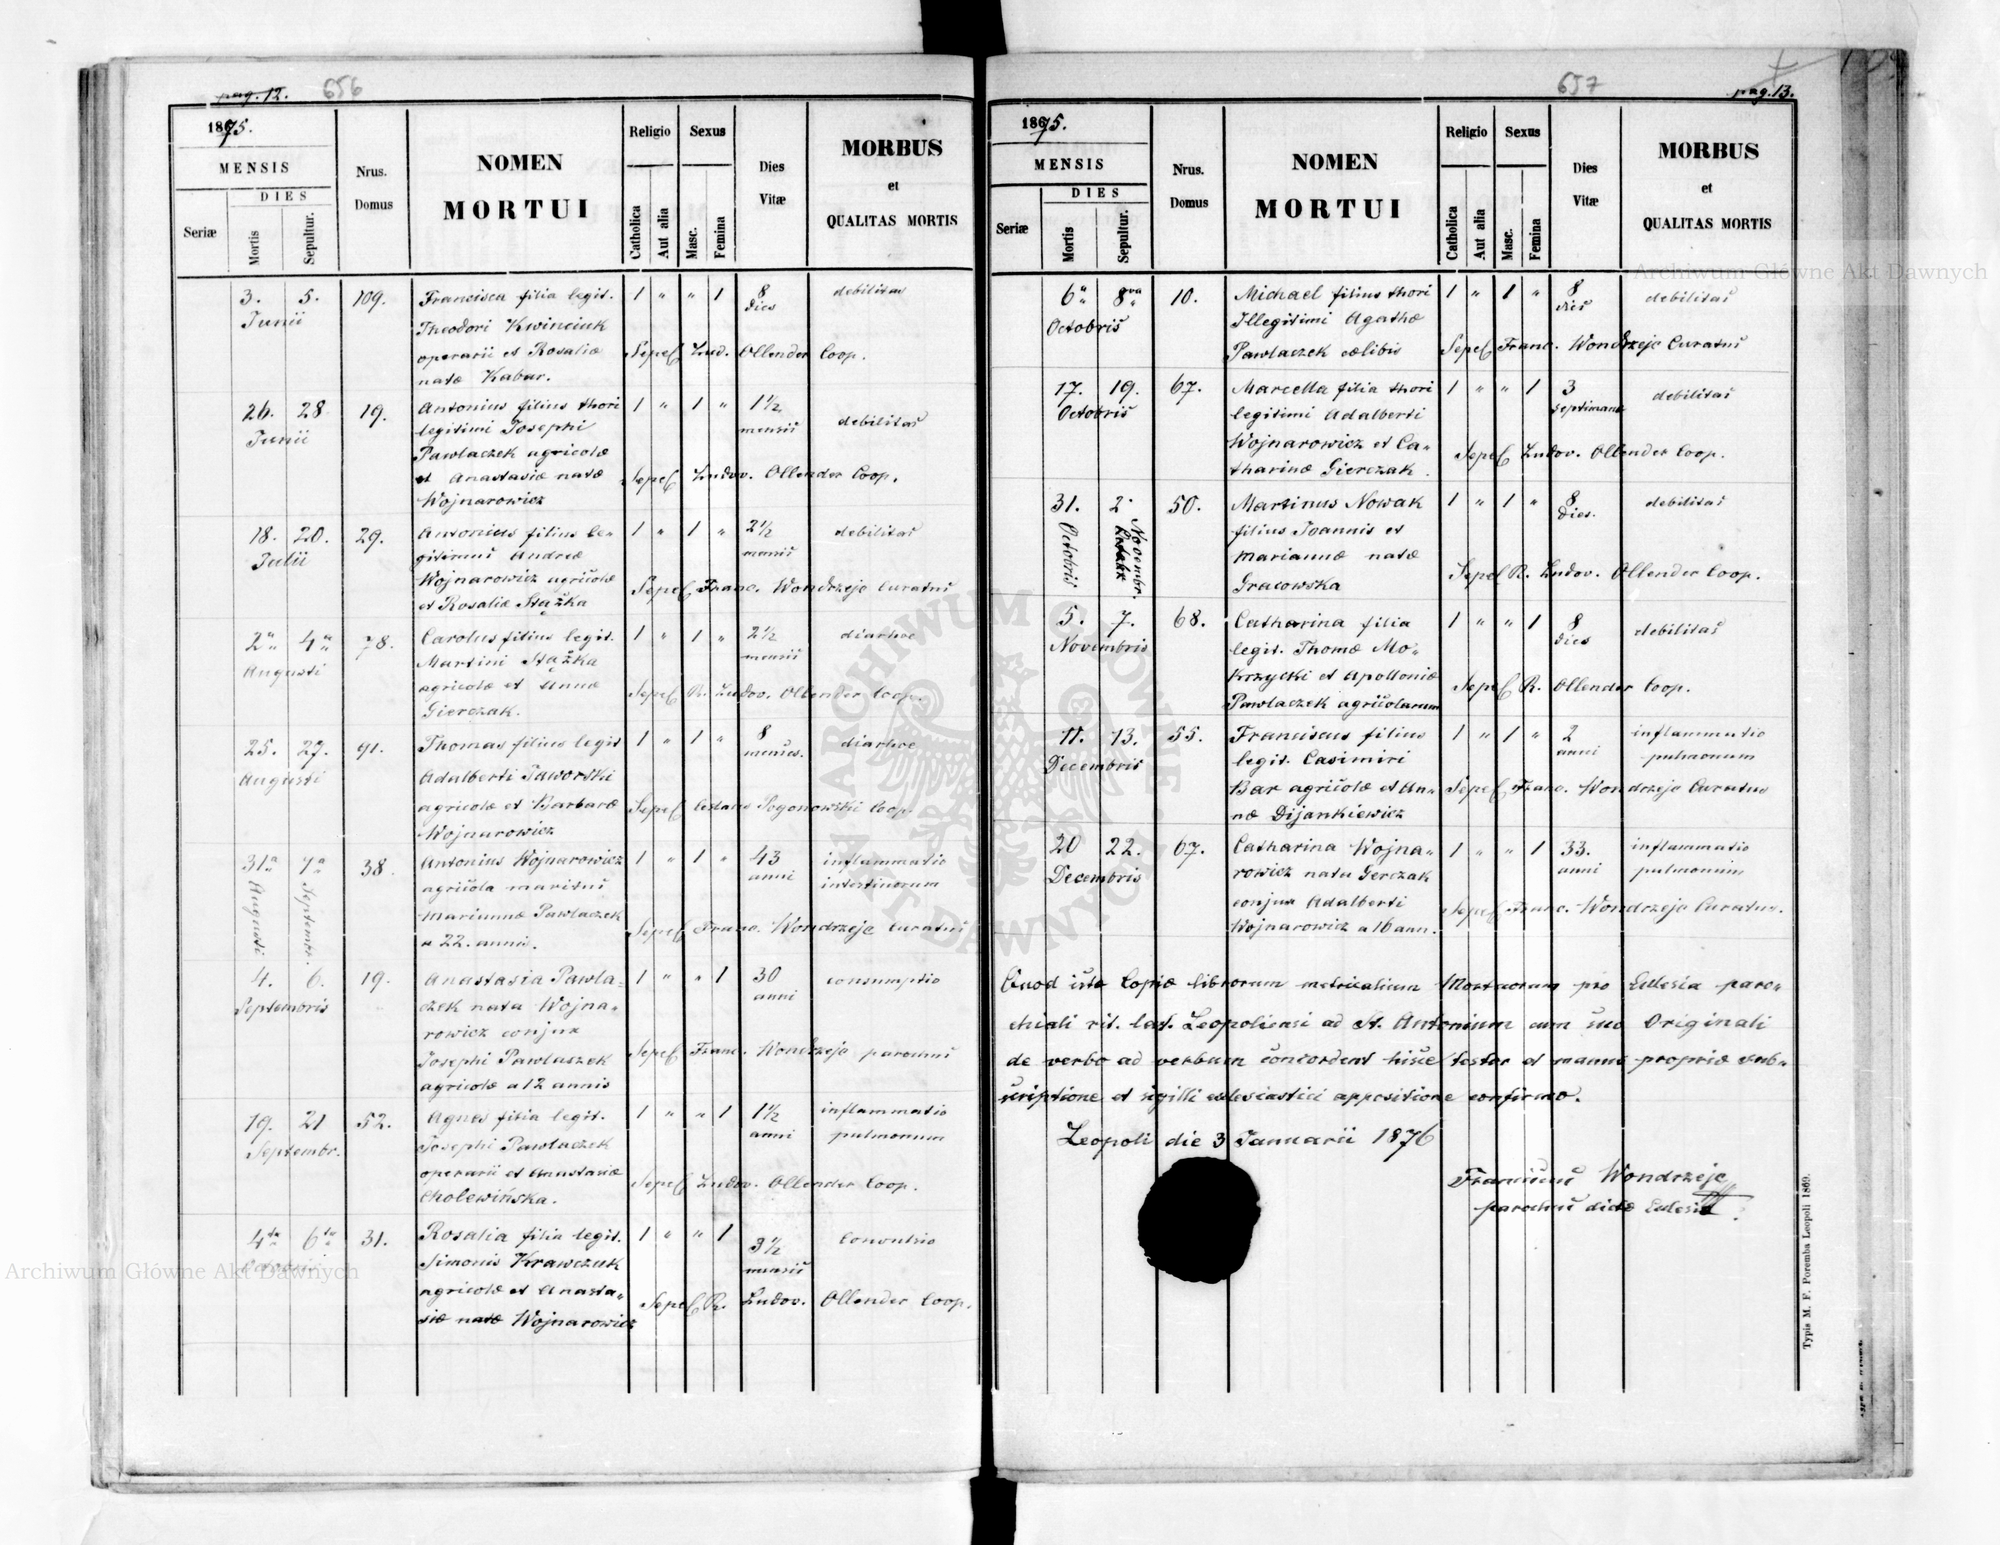 pag. 12. 656
1875.
MENSIS
DIES
Seriæ
Mortis
Sepultur.
Nrus.
Domus
NOMEN
MORTUI
Religio
Catholica
Aut alia
Sexus
Masc.
Femina
Dies
Vitæ
MORBUS
et
QUALITAS MORTIS
3. 5. 109. Francisca filia legit. 1 " " 1 8 debilitas
Junii dies
Theodori Kwinciuk
operarii et Rosaliæ Sepel Lud. Ollender Coop.
natæ Kabar.
26. 28 19. Antonius filius thori 1 " 1 " 1½ debilitas
Junii legitimi Josephi mensis
Pawlaczek agricolæ
et Anastasiæ natæ Sepel Ludov. Ollender Coop.
Wojnarowicz
18. 20. 29. Antonius filius le- 1 " 1 " 2½ debilitas
Julii gitimus Andreæ mensis
Wojnarowicz agricolæ Sepel Franc. Wondrzeje Curatus
et Rosaliæ Stążka
2" 4" 78. Carolus filius legit. 1 " 1 " 2½ diarhoe
Augusti Martini Stążka mensis
agricolæ et Annæ Sepel R. Ludov. Ollender Coop.
Gierczak.
25. 27. 91. Thomas filius legit 1 " 1 " 8 diarhoe
Augusti menses.
Adalberti Jaworski
agricolæ et Barbaræ Sepel Pogonowski Coop.
Wojnarowicz
31a 1a 38. Antonius Wojnarowicz 1 " 1 " 43 inflammatio
Augusti Septembr. agricola maritus anni intestinorum
Mariannæ Pawlaczek Sepel Franc. Wondrzeje Curatus
a 22. annis.
4. 6. 19. Anastasia Pawla- 1 " " 1 30 consumptio
Septembris czek nata Wojna- anni
rowicz conjux
Josephi Pawlaczek Sepel Franc. Wondrzeje parochus
agricolæ a 12 annis
19. 21 52. Agnes filia legit. 1 " " 1 1½ inflammatio
Septembr. Josephi Pawlaczek anni pulmonum
operarii et Anastasiæ Sepel Ludov. Ollender Coop.
Cholewińska.
4ta 6ta 31. Rosalia filia legit. 1 " " 1 3½ Convulsio
Octobris Simonis Krawczuk mensis
agricolæ et Anasta- Sepel R. Ludov. Ollender Coop.
siæ natæ Wojnarowicz
657 pag. 13.
1875.
MENSIS
DIES
Seriæ
Mortis
Sepultur.
Nrus.
Domus
NOMEN
MORTUI
Religio
Catholica
Aut alia
Sexus
Masc.
Femina
Dies
Vitæ
MORBUS
et
QUALITAS MORTIS
6a 8va 10. Michael filius thori 1 " 1 " 8 debilitas
Octobris Illegitimi Agathæ dies
Pawlaczek cælibis Sepel Franc. Wondrzeje Curatus
17. 19. 67. Marcella filia thori 1 " " 1 3 debilitas
Octobris legitimi Adalberti septimanæ
Wojnarowicz et Ca- Sepel Ludov. Ollender Coop.
tharinæ Gierczak.
31. 2 50. Martinus Nowak 1 " 1 " 8 debilitas
Octobris Novembr. filius Joannis et dies.
Mariannæ natæ Sepel R. Ludov. Ollender Coop.
Gracowska
5. 7. 68. Catharina filia 1 " " 1 8 debilitas
Novembris legit. Thomæ Mo- dies
krzycki et Apolloniæ Sepel R. Ollender Coop.
Pawlaczek agricolarum
11. 13. 55. Franciscus filius 1 " 1 " 2 inflammatio
Decembris legit. Casimiri anni pulmonum
Bar agricolæ et An- Sepel Franc. Wondrzeje Curatus
næ Dijankiewicz
20 22. 67. Catharina Wojna- 1 " " 1 33. inflammatio
Decembris rowicz nata Gerczak anni pulmonum
conjux Adalberti Sepel Franc. Wondrzeje Curatus.
Wojnarowicz a 16 ann.
Quod istæ Copiæ librorum metricalium Mortuorum pro Ecclesia paro-
chiali rit. lat. Leopoliensi ad St. Antonium cum suo Originali
de verbo ad verbum concordent hisce testor et manus propriæ sub-
scriptione et sigilli ecclesiastici appositione confirmo.
Leopoli die 3 Januarii 1876
Franciscus Wondrzeje
parochus dictæ Ecclesiæ
Typis M. F. Poremba Leopoli 1869.
Archiwum Główne Akt Dawnych
Archiwum Główne Akt Dawnych
ARCHIWUM GŁÓWNE AKT DAWNYCH